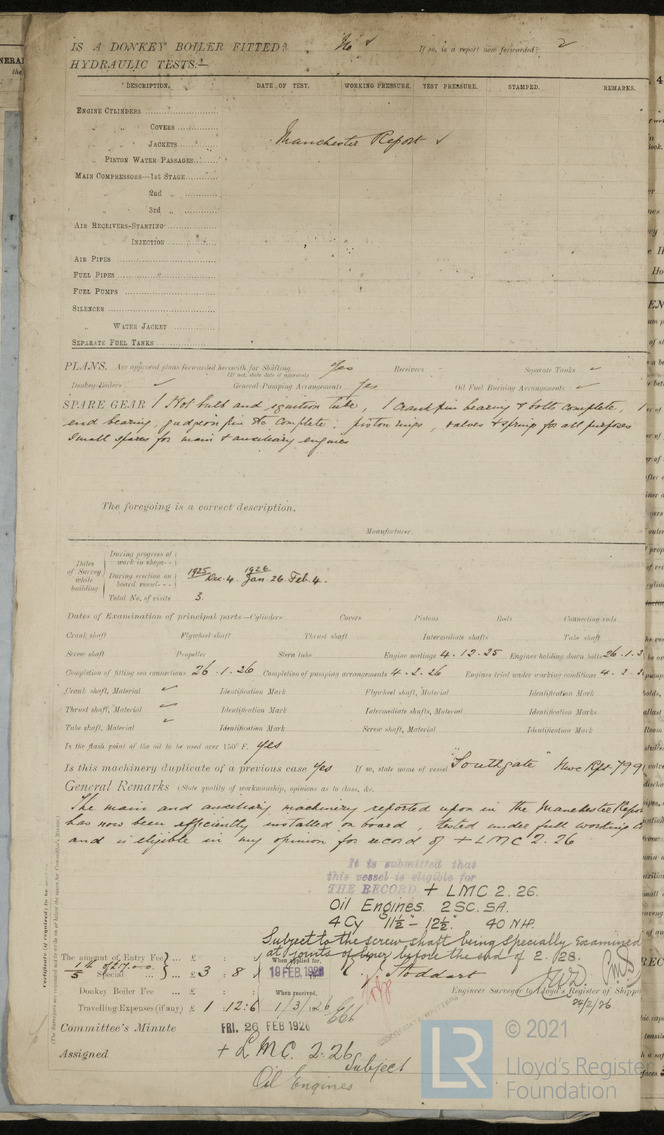 IS A DONKEY BOILER FITTED? No ✓ If so, is a report now forwarded? 2
HYDRAULIC TESTS:—
DESCRIPTION. DATE OF TEST. WORKING PRESSURE. TEST PRESSURE. STAMPED. REMARKS.
ENGINE CYLINDERS
" " COVERS
" " JACKETS Manchester Report ✓
" PISTON WATER PASSAGES
MAIN COMPRESSORS—1st STAGE
" 2nd "
" 3rd "
AIR RECEIVERS—STARTING
" INJECTION
AIR PIPES
FUEL PIPES
FUEL PUMPS
SILENCER
" WATER JACKET
SEPARATE FUEL TANKS
PLANS. Are approved plans forwarded herewith for Shafting Yes Receivers Separate Tanks ✓
(If not, state date of approval)
Donkey Boilers ✓ General Pumping Arrangements Yes Oil Fuel Burning Arrangements ✓
SPARE GEAR 1 Hot bulb and ignition tube, 1 Crank pin bearing & bolts complete, 1
end bearing, gudgeon pin &c complete. piston rings, valves & springs for all purposes
Small spares for main & auxiliary engines
The foregoing is a correct description,
Manufacturer.
Dates of Survey while building
During progress of work in shops - -
During erection on board vessel - - - 1925 Dec. 4. 1926 Jan. 26. Feb. 4.
Total No. of visits 3.
Dates of Examination of principal parts—Cylinders Covers Pistons Rods Connecting rods
Crank shaft Flywheel shaft Thrust shaft Intermediate shafts Tube shaft
Screw shaft Propeller Stern tube Engine seatings 4.12.25 Engines holding down bolts 26.1.2
Completion of fitting sea connections 26.1.26 Completion of pumping arrangements 4.2.26 Engines tried under working conditions 4.2.2
Crank shaft, Material ✓ Identification Mark Flywheel shaft, Material Identification Mark
Thrust shaft, Material ✓ Identification Mark Intermediate shafts, Material Identification Marks
Tube shaft, Material ✓ Identification Mark Screw shaft, Material Identification Mark
Is the flash point of the oil to be used over 150° F. Yes
Is this machinery duplicate of a previous case Yes If so, state name of vessel "Southgate" Nwc Rpt. 799
General Remarks (State quality of workmanship, opinions as to class, &c.
The main and auxiliary machinery reported upon in the Manchester Repor
has now been efficiently installed on board, tested under full working c
and is eligible in my opinion for record of + LMC 2.26
It is submitted that
this vessel is eligible for
THE RECORD. + LMC 2.26.
Oil Engines. 2SC. SA.
4 Cy 11½" - 12½". 40 NH.
Subject to the screw shaft being specially examined
at joints of liner before the end of 2.28.
The amount of Entry Fee £ : : When applied for,
1/5 Special £ 3 : 8 : 19 FEB 1926 Stoddart
Donkey Boiler Fee £ : : When received, Engineer Surveyor to Lloyd's Register of Shipp
24/2/26
Travelling Expenses (if any) £ 1 : 12 : 6 1/3/26
Committee's Minute FRI. 26 FEB 1926
Assigned + LMC. 2.26 Subject
Oil Engines
© 2021
LR Lloyd's Register
Foundation